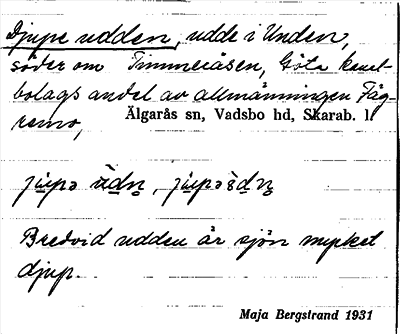 Djupe udden, udde i Unden,
söder om Timmeråsen, Göta kanal
bolags andel av allmänningen Fäg-
remo, Älgarås sn, Vadsbo hd, Skarab. l.
Bredvid udden är sjön mycket
djup.
Maja Bergstrand 1931